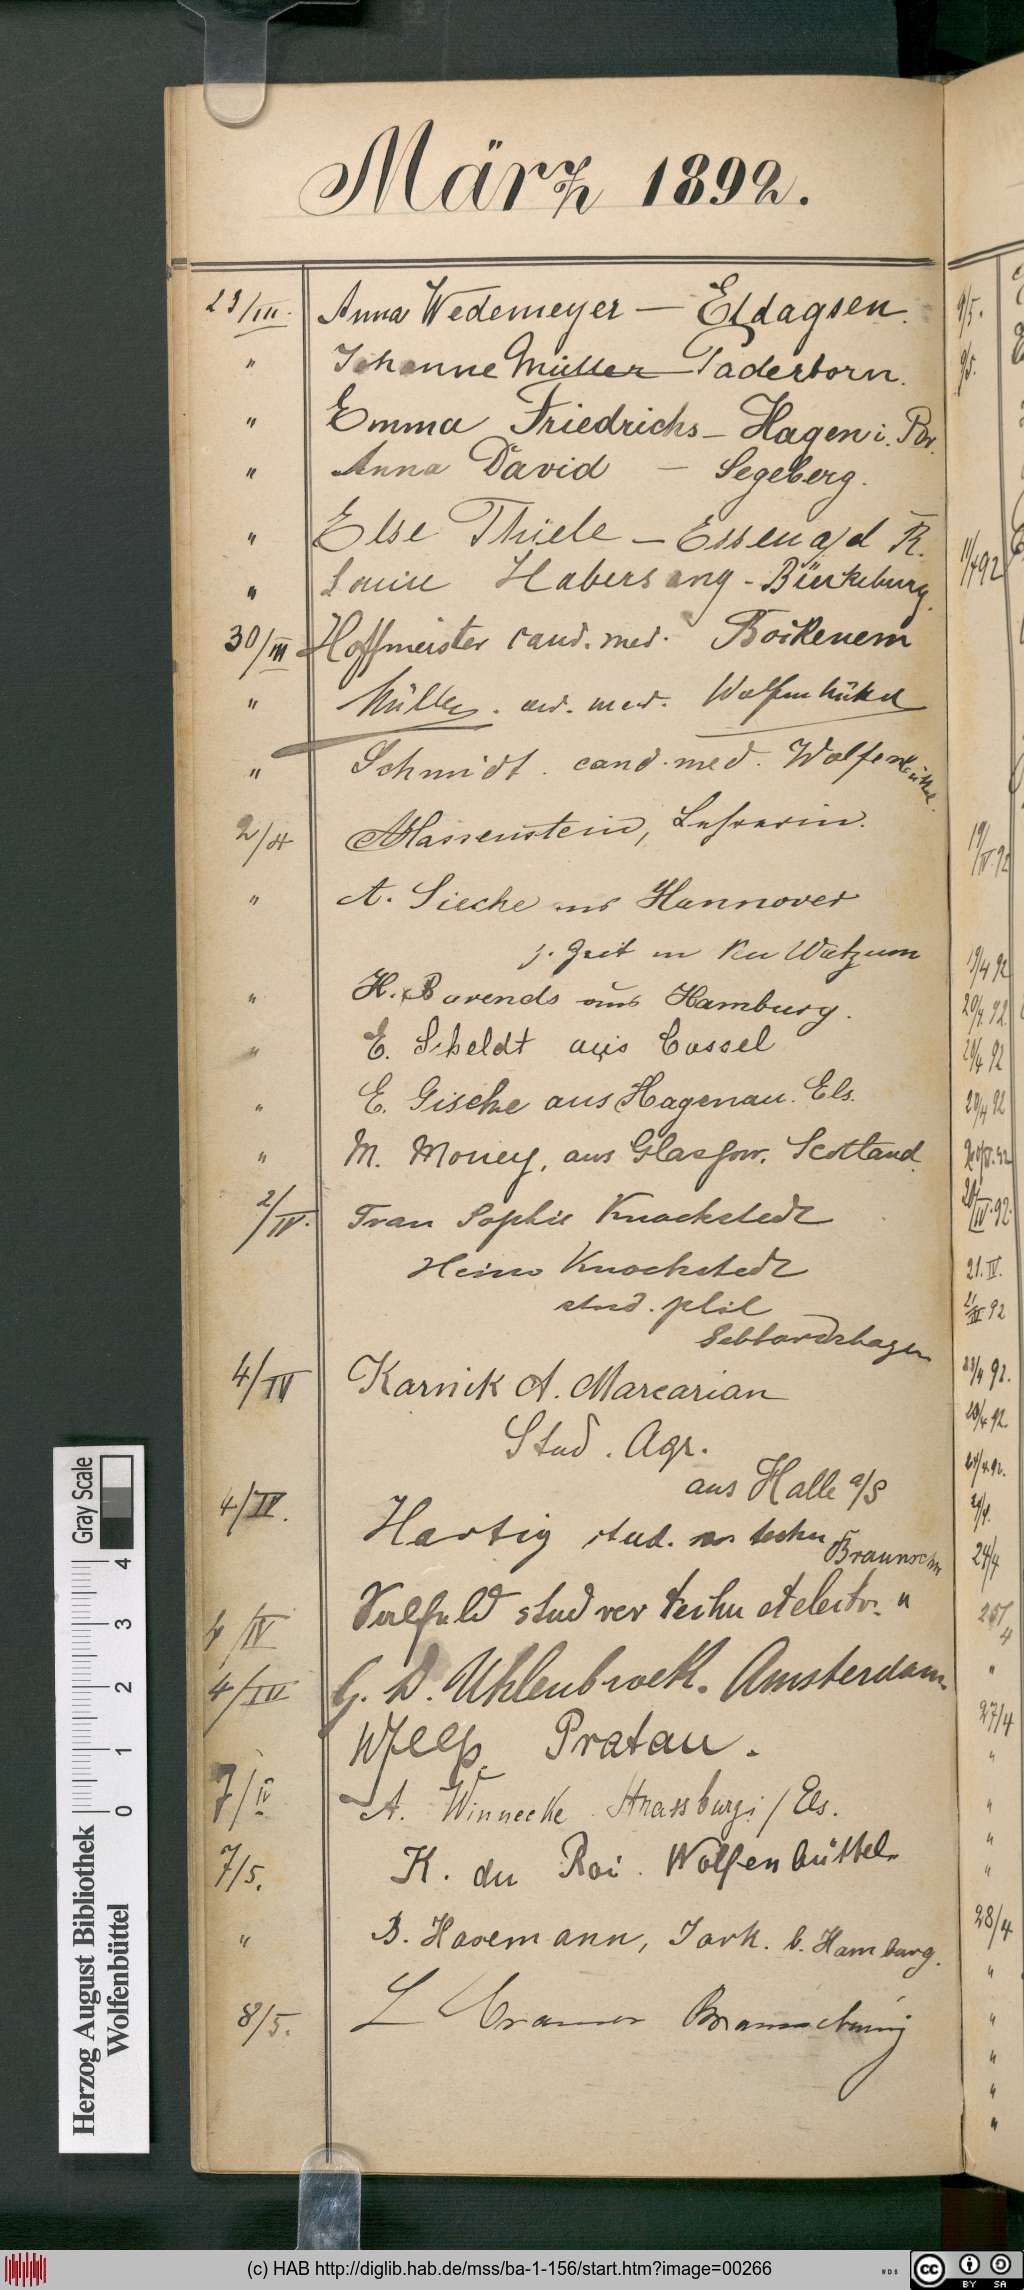 März 1892.
29/III. Anna Wedemeyer — Eldagsen.
" Johanne Müller — Paderborn.
" Emma Friedrichs — Hagen i. Br.
" Anna David — Segeberg.
" Else Thiele — Essen a/d R.
" Louise Habersang - Bückeburg.
30/III Hoffmeister cand. med. Bockenem
" Müller. cand. med. Wolfenbüttel
" Schmidt. cand. med. Wolfenbüttel.
2/4 Massenstein, Lehrerin.
" A. Siecke aus Hannover
z. Zeit in Watzum
" H. Barends aus Hamburg.
" E. Scheldt aus Cassel
" E. Gische aus Hagenau. Els.
" M. Money, aus Glasgow. Scotland.
2/IV. Frau Sophie Knackstedt
Heino Knackstedt
stud. phil
4/IV Karnik A. Marcarian
Stud. Agr.
aus Halle a/S
4/IV. Hartig stud. techn Braunschw
4/IV stud rer techn electr. "
4/IV G. D. Uhlenbroek. Amsterdam.
Pratau.
7/IV A. Winnecke. Strassburg i/Els.
7/5. K. du Roi. Wolfenbüttel.
" B. Hasemann, Jork. b. Hamburg.
8/5. L Cramer Braunschweig
9/5.
9/5.
11/4 92
19/IV. 92
19/4 92
20/4. 92.
20/4 92
20/4 92
20/IV. 92
20/IV. 92.
21. IV.
21/IV 92
23/4 92.
24/4
27/4
"
"
"
"
28/4
"
"
"
"
"
Gray Scale
4
3
2
1
0
Herzog August Bibliothek
Wolfenbüttel
(c) HAB http://diglib.hab.de/mss/ba-1-156/start.htm?image=00266
cc BY SA